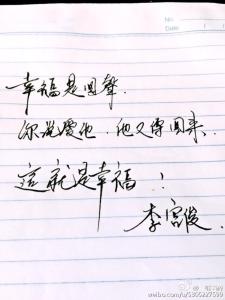 No.
Date
幸福是回聲.
你說愛他. 他又傳回來.
這就是幸福!
李富俊.
weibo.com/u/5300227599